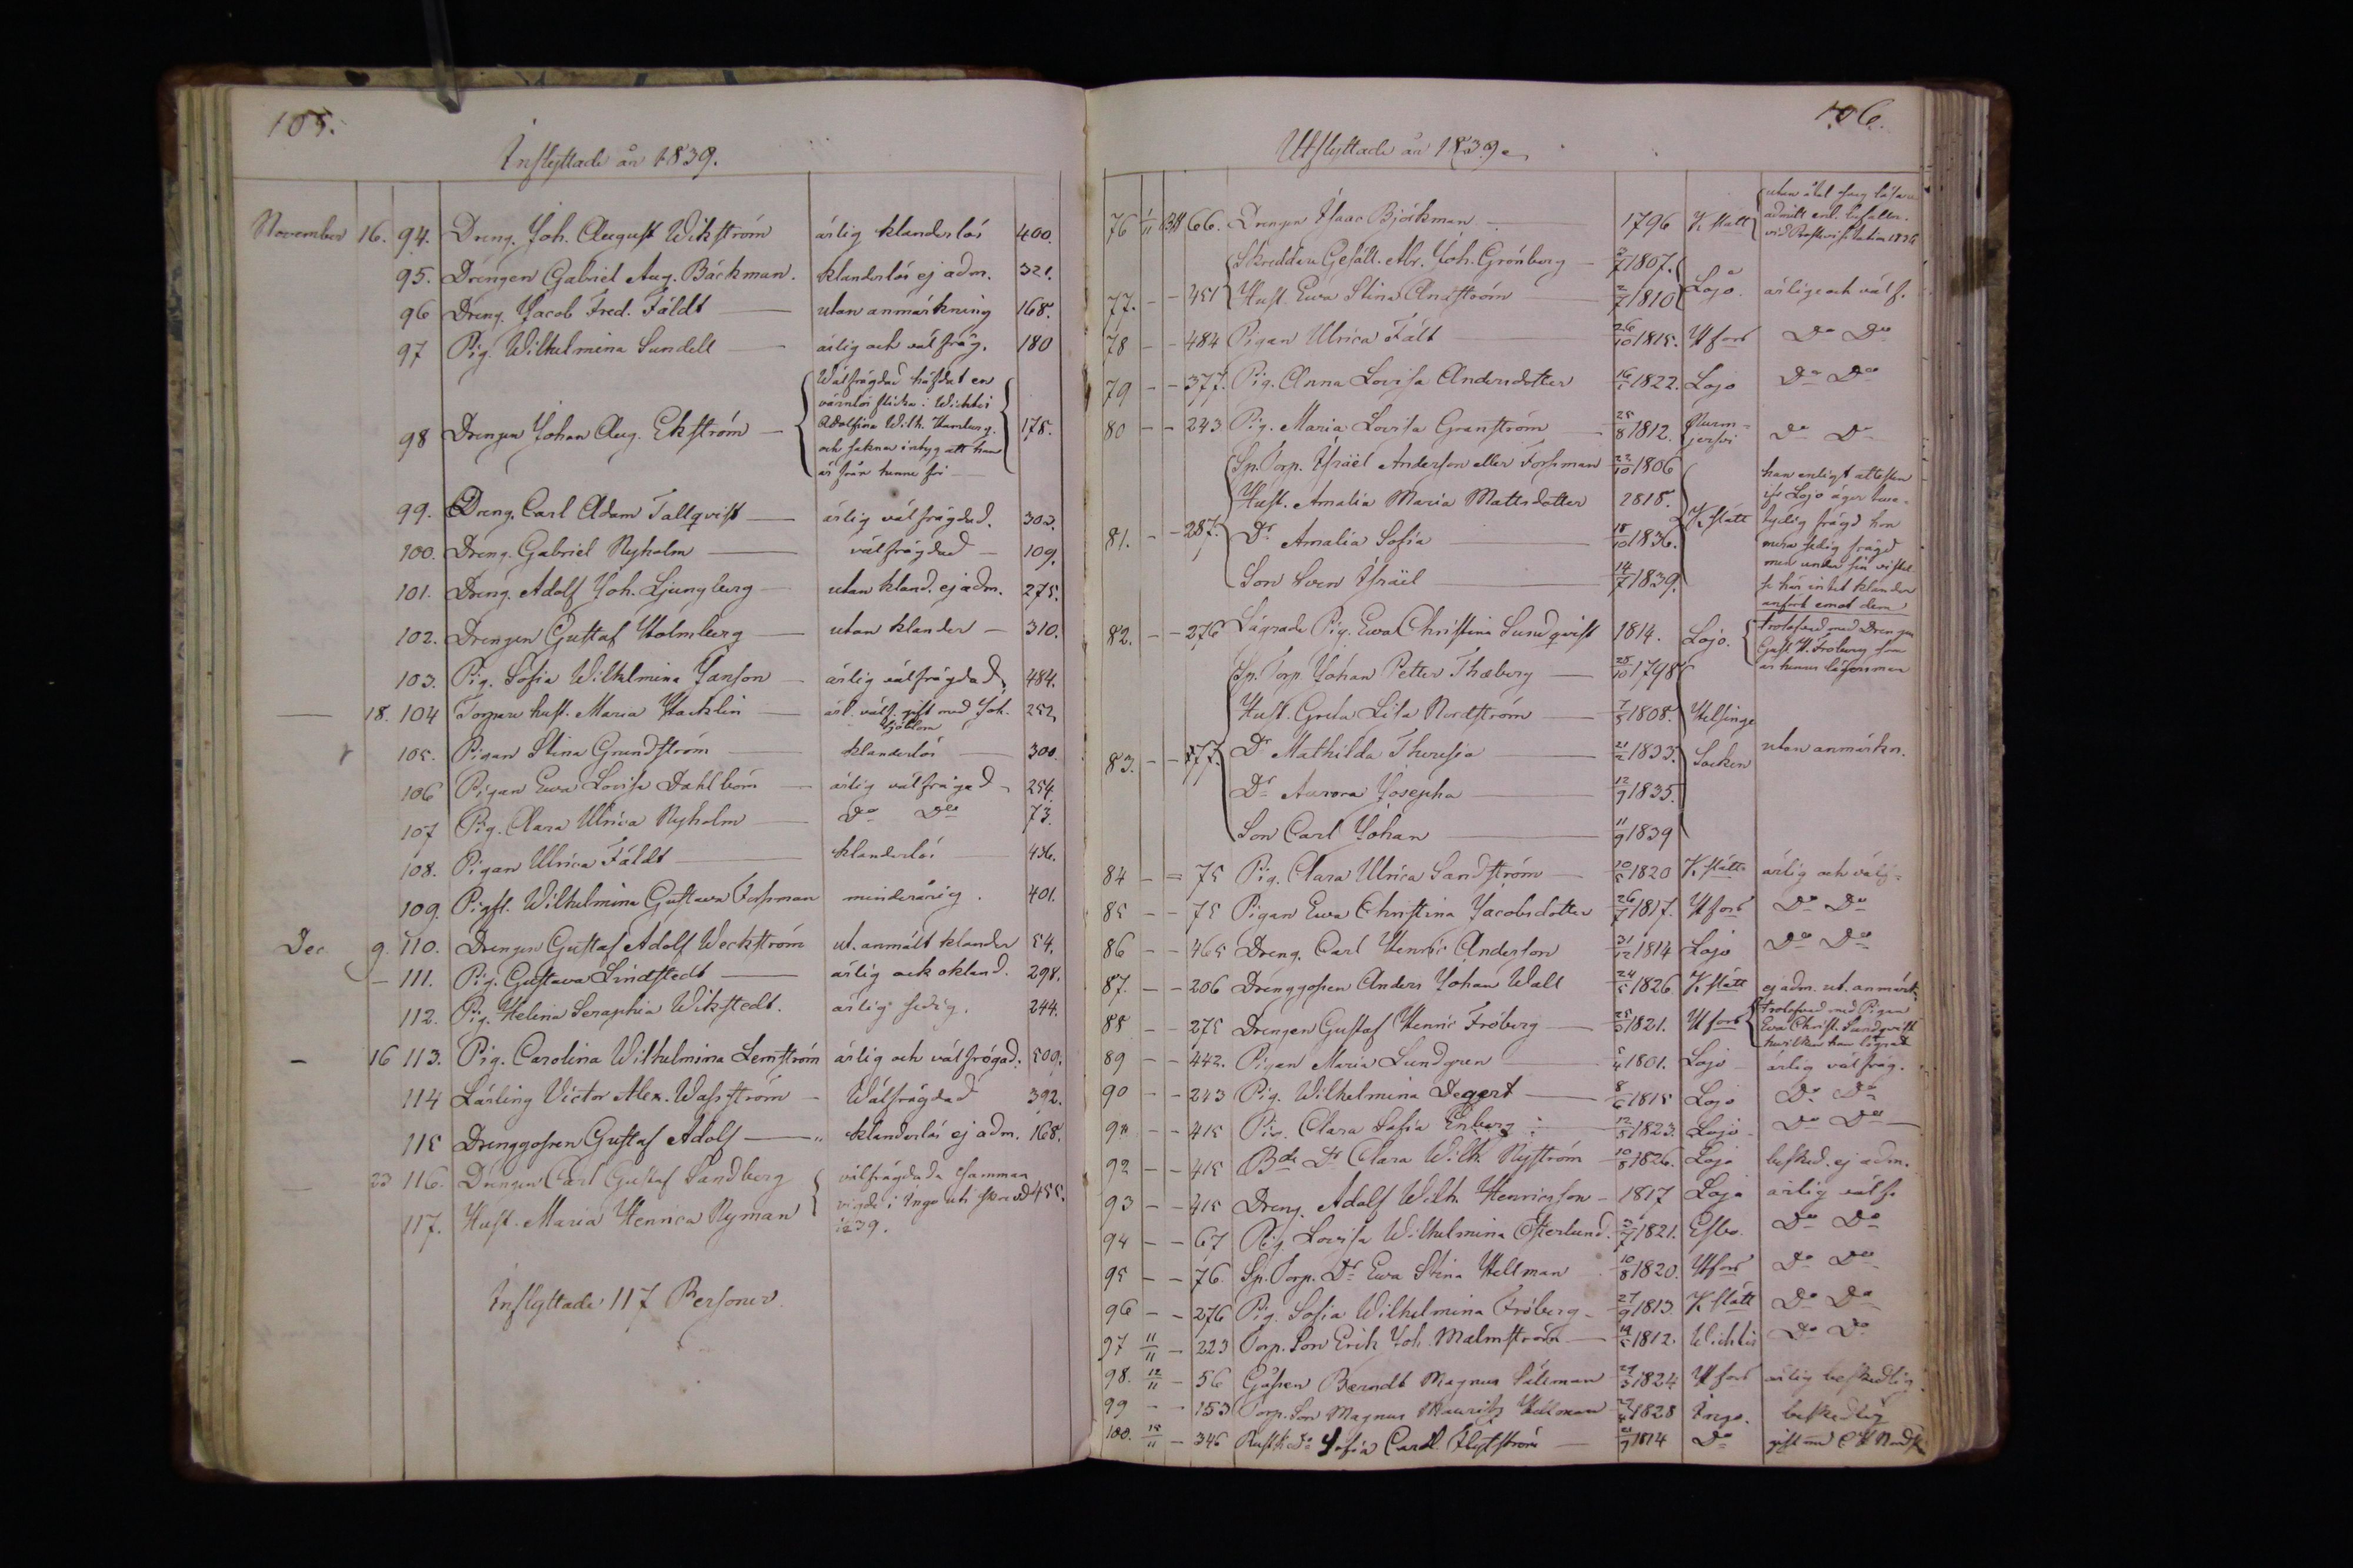 105.
Inflyttade år 1839.
November 16. 94. Dreng. Joh. August Wikström ärlig klanderlös 400.
95. Drengen Gabriel Aug. Bäckman. klanderlös ej adm. 321.
96 Dreng. Jacob Fred. Fäldt — utan anmärkning 168.
97 Pig. Wilhelmina Sundell — ärlig och välfräg. 180
98 Drengen Johan Aug. Ekström — Wälfrägdad häfdat en
värnlös flicka i Wichtis
Adolfina Wilh. Hamberg. 178.
och saknar intyg att han
är från henne fri
99. Dreng. Carl Adam Tallqvist — ärlig välfrägdad. 303.
100. Dreng. Gabriel Nyholm — välfrägdad — 109.
101. Dreng. Adolf Joh. Ljungberg — utan kland. ej adm. 275.
102. Drengen Gustaf Holmberg — utan klander — 310.
103. Pig. Sofia Wilhelmina Janson — ärlig välfrägdad 484.
— 18. 104 Torpare hust. Maria Hacklin — ärl. välf. gift med Joh. 252,
105. Pigan Stina Grundström — klanderlös — 300.
106 Pigan Ewa Lovisa Dahlbom — ärlig välfrägad 254.
107 Pig. Clara Ulrica Nyholm — Do Do 73.
108. Pigan Ulrica Fäldt — klanderlös 436.
109. Pigfl. Wilhelmina Gustava Forsman minderårig. 401.
Dec. 9. 110. Drengen Gustaf Adolf Weckström ut. anmält klander 54.
— 111. Pig. Gustava Lindstedt — ärlig och okland. 298.
112. Pig. Helena Seraphia Wikstedt. ärlig sedig. 244.
— 16 113. Pig. Carolina Wilhelmina Lernström ärlig och välfrägad. 500.
114 Lärling Victor Alex. Wasström — Wälfrägdad 392.
115 Drenggossen Gustaf Adolf — klanderlös ej adm. 168.
23 116. Drengen Carl Gustaf Sandberg välfrägdade samman
vigde i Ingo 455.
117. Hust. Maria Henrica Nyman 1839.
Inflyttade 117 Personer.
106.
Utflyttade år 1839.
76 1/11 66. Drengen Isaac Björkman — 1796 Kslätt
vid Prostvisitation 1836
Skreddare Gesäll. Abr. Joh. Grönberg — 1807.
77. - - 451 Hust. Ewa Stina Andström — 2/7 1810 Lojo. ärlige och välf.
78 - - 484 Pigan Ulrica Fält — 26/10 1815. Hfors Do Do
79 - - 377. Pig. Anna Lovisa Andersdotter 1822. Lojo Do Do
80 - - 243 Pig. Maria Lovisa Granström 25/8 1812. Nurmijervi Do Do
Sp. Torp. Israël Anderson eller Forsman 22/10 1806 han enligt attesten
Hust. Amalia Maria Mattsdotter 2818. ifr Lojo äger twetydig frägd hon
81. - - 287. Dr Amalia Sofia — 18/10 1836. Kslätt mera sedig frägd
Son Sven Israël — 14/7 1839. men under sin vistelse här intet klander
anfört emot dem
82. - - 276 Lägrade Pig. Ewa Christina Sundqvist 1814. Lojo. trolofvad med Drengen
Gust. H. Fröberg som
är hennes lägersman
Sp. Torp. Johan Petter Thoeberg — 28/10 1798
Hust. Greta Lisa Nordström — 1808. Helsinge
83. - - 177. Dr Mathilda Theresia — 21/2 1833. Socken utan anmärkn.
Dr Aurora Josepha — 12/9 1835.
Son Carl Johan — 11/9 1839
84 - - 75 Pig. Clara Ulrica Sandström — 10/5 1820 Kslätt ärlig och välf.
85 - - 75 Pigan Ewa Christina Jacobsdotter 26/7 1817. Hfors Do Do
86 - - 465 Dreng. Carl Henric Anderson 31/12 1814 Lojo Do Do
87. - - 206 Drenggossen Anders Johan Wall 24/5 1826 Kslätt ej adm. ut. anmärk.
88 - - 275 Drengen Gustaf Henric Fröberg — 1821. Hfors trolofvad med Pigan
Ewa Christ. Sundqvist
hvilken han lägrat
89 - - 442. Pigan Maria Lundgren — 1801. Lojo — ärlig välfräg.
90 - - 243 Pig. Wilhelmina Degert — 8/6 1815 Lojo Do Do
91 - - 415 Pig. Clara Sofia Enberg — 12/8 1823. Lojo — Do Do —
92 - - 415 Bde Dr Clara Wilh. Nyström 10/8 1826. Lojo besked. ej adm.
93 - - 415 Dreng. Adolf Wilh. Henricsson — 1817 Lojo ärlig välf.
94 - - 67 Pig. Lovisa Wilhelmina Österlund. 1821. Esbo. Do Do
95 - - 76. Sp. Torp. Dr Ewa Stina Hellman 10/8 1820. Hfors Do Do
96 - - 276 Pig. Sofia Wilhelmina Fröberg — 27/9 1813 Kslätt Do Do
97 11/11 - 223 Torp. Son Erik Joh. Malmström — 1812. Wichtis Do Do
98. 12/11 - 56 Gossen Berndt Magnus Sallman 1824 Hfors ärlig beskedlig
99 - - 153 Torp. Son Magnus Mauritz Hellman 1828 Ingo. beskedlig
100. 15/11 - 346 Sofia Carol. Flytström — 1814 Do gift med